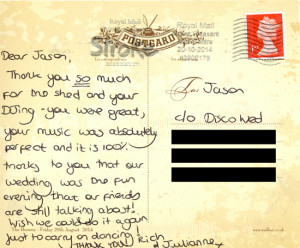 Royal Mail
POSTCARD
Royal Mail
20-10-2014
Dear Jason,
Thank you so much
for the shed and your
DJing - you were great,
your music was absolutely
perfect and it is 100%
thanks to you that our
wedding was the fun
evening that our friends
are still talking about!
Wish we could do it again
just to carry on dancing.
THANK YOU! Rich
Julianne x
For Jason
c/o Disco Wed
29th August 2014